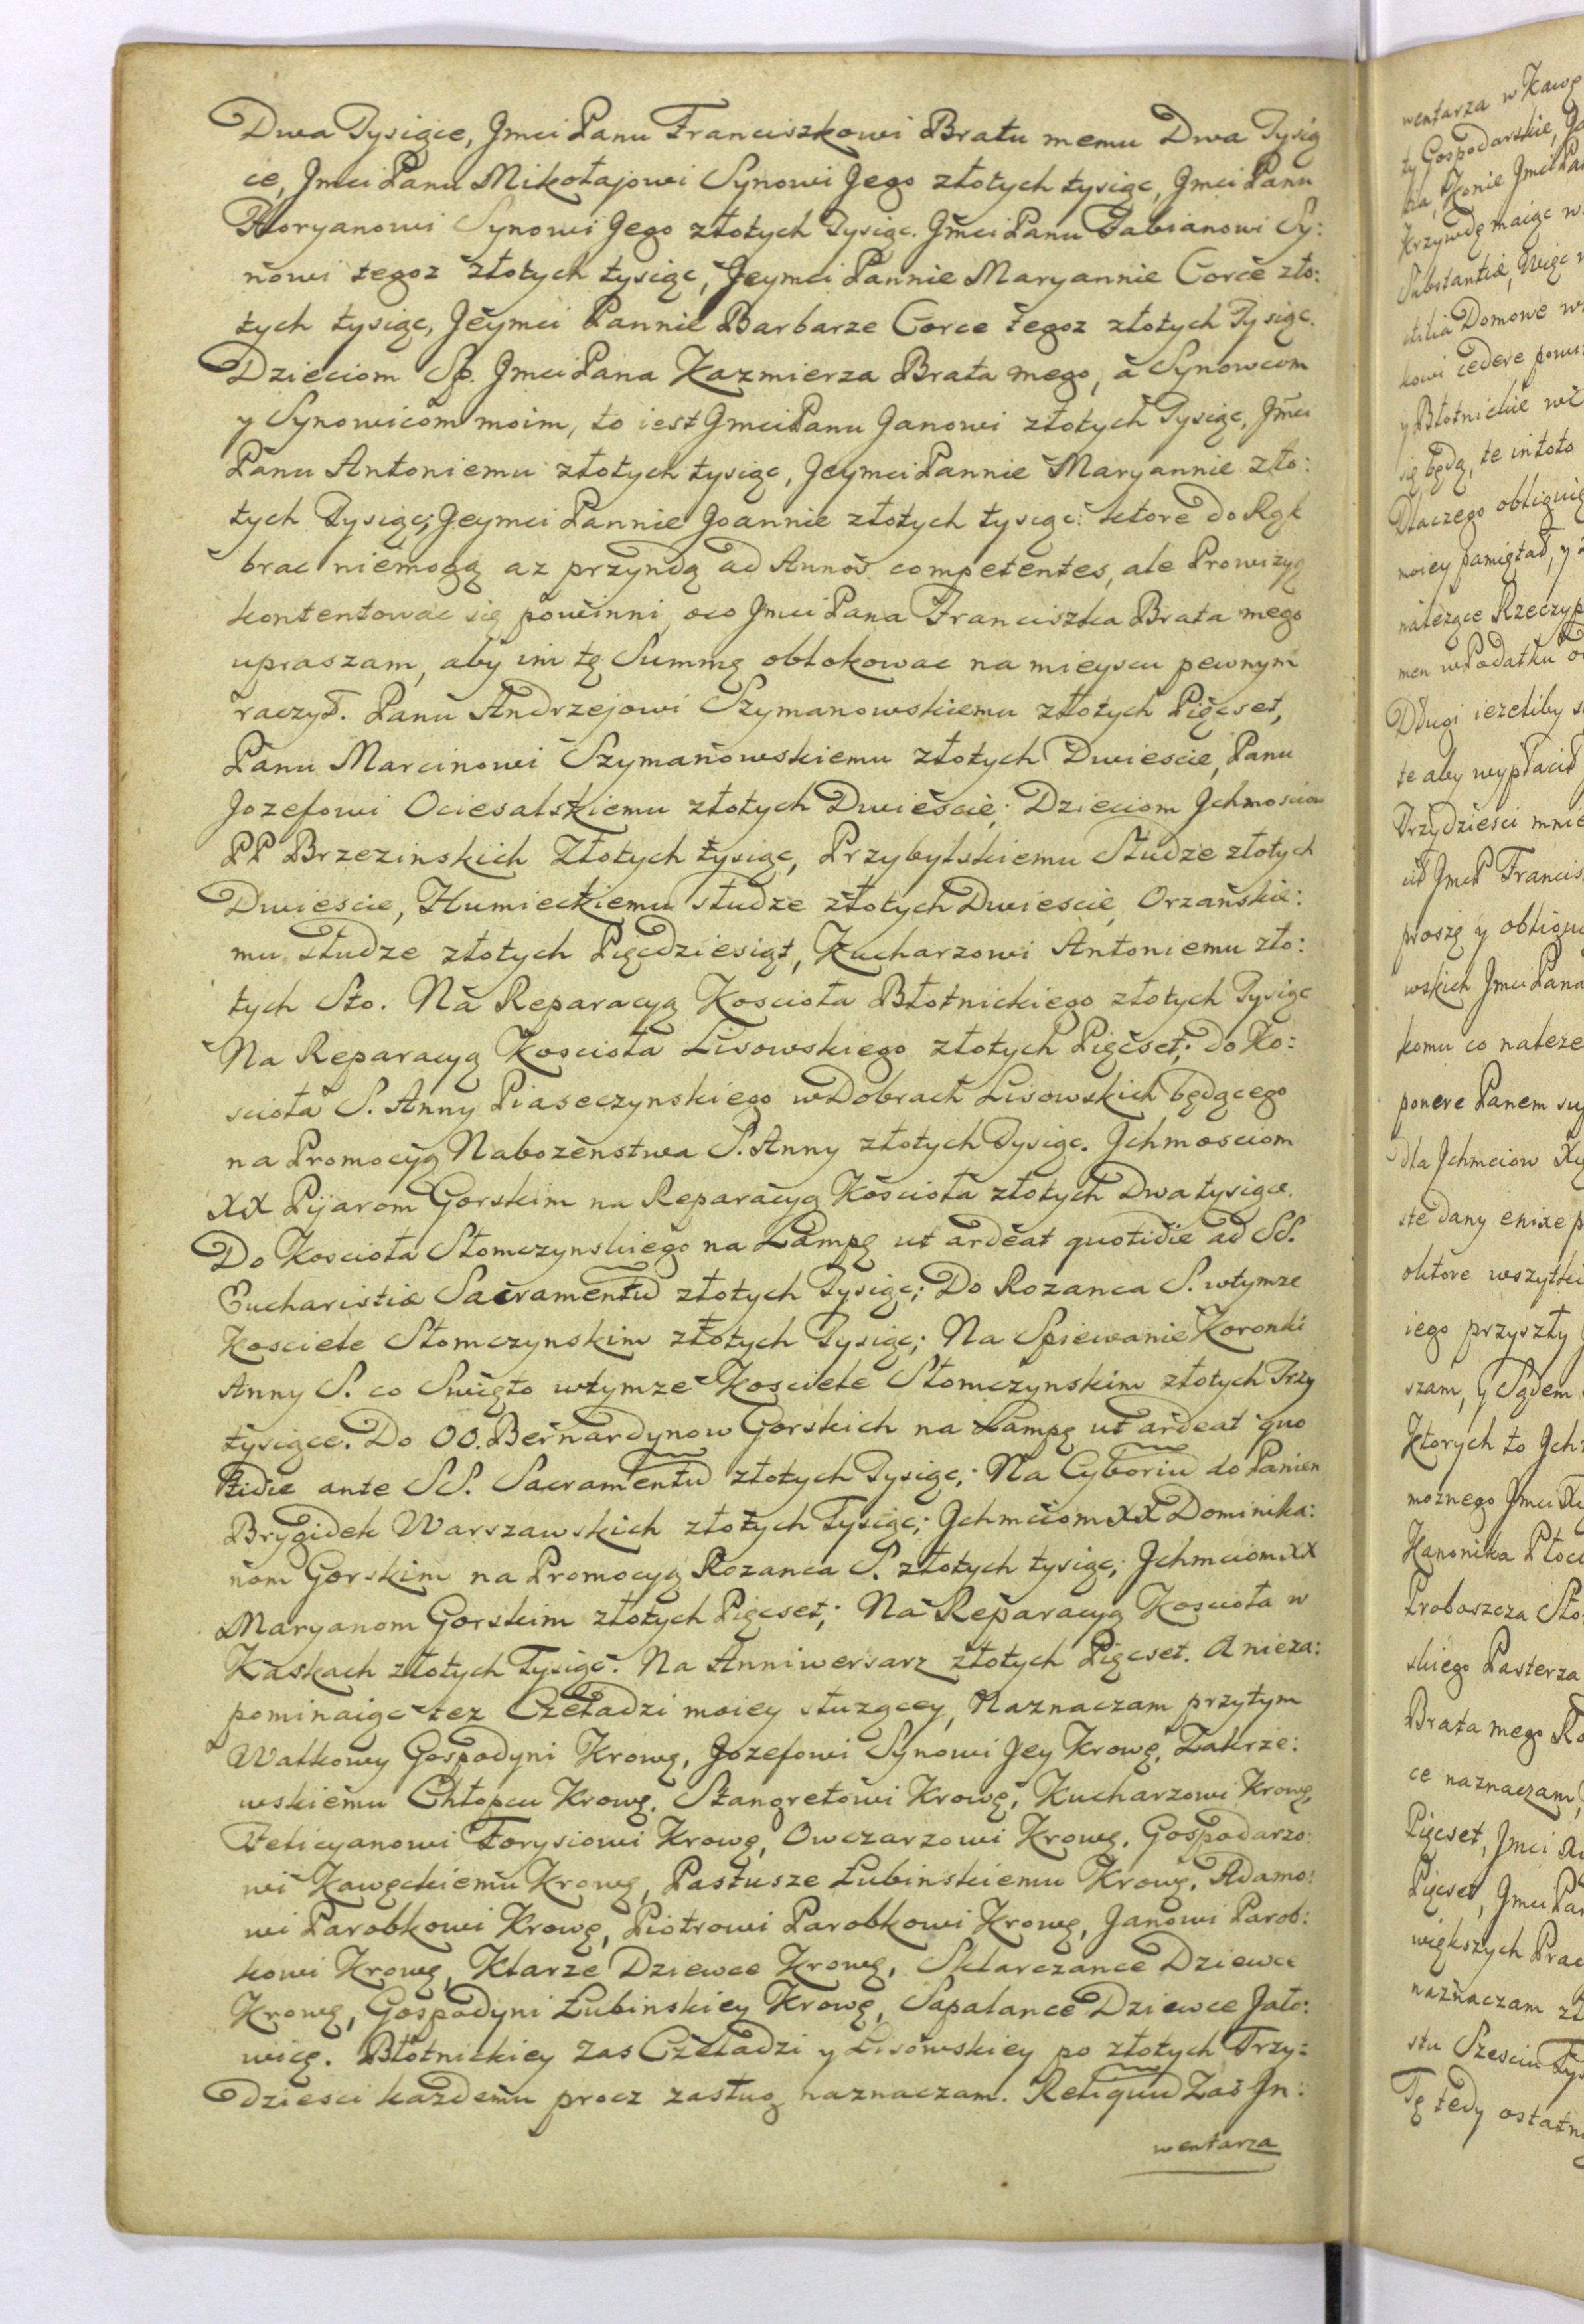 Dwa Tysiące, Jmci Panu Franciszkowi Bratu memu Dwa Tysią
ce, Jmci Panu Mikołajowi Synowi Jego złotych tysiąc, Jmci Panu
Floryanowi Synowi Jego złotych Tysiąc. Jmci Panu Fabianowi Sy:
nowi tegoz złotych tysiąc, Jeymci Pannie Maryannie Corce zło:
tych tysiąc, Jeymci Pannie Barbarze Corce tegoz złotych Tysiąc.
Dzieciom Sp. Jmci Pana Kazmierza Brata mego, a Synowcom
y Synowicom moim, to iest Jmci Panu Janowi złotych Tysiąc, Jmci
Panu Antoniemu złotych tysiąc, Jeymci Pannie Maryannie zło:
tych Tysiąc; Jeymci Pannie Joannie złotych tysiąc: ktore do Rąk
brac niemogą az przyndą ad Annos competentes, ale Prowizyą
kontentowac się powinni, oco Jmci Pana Franciszka Brata mego
upraszam, aby im tę Summę oblokowac na mieyscu pewnym
raczył. Panu Andrzejowi Szymanowskiemu złotych Pięcset,
Panu Marcinowi Szymanowskiemu złotych Dwiescie, Panu
Jozefowi Ociesalskiemu złotych Dwiescie; Dzieciom Jchmosciow
PP Brzezinskich Złotych tysiąc, Przybylskiemu Słudze złotych
Dwiescie, Humieckiemu słudze złotych Dwiescie, Orzanskie:
mu słudze złotych Pięcdziesiąt, Kucharzowi Antoniemu zło:
tych Sto. Na Reparacyą Kosciola Błotnickiego złotych Tysiąc
Na Reparacyą Kosciola Lisowskiego złotych Pięcset; do Ko:
sciola S. Anny Piaseczynskiego w Dobrach Lisowskich będącego
na Promocyą Nabozenstwa S. Anny złotych Tysiąc. Jchmosciom
XX Pijarom Gorskim na Reparacyą Kosciola złotych Dwa tysiące.
Do Kosciola Słomczynskiego na Lampę ut ardeat quotidie ad SS.
Eucharistiæ Sacramentu złotych Tysiąc; Do Rozanca S. wtymze
Kosciele Słomczynskim złotych Tysiąc; Na Spiewanie Koronki
Anny S. co Swięto wtymze Kosciele Słomczynskim złotych Trzy
tysiące. Do OO. Bernardynow Gorskich na Lampę ut ardeat quo
tidie ante SS. Sacramentu złotych Tysiąc; Na Cyboriu do Panien
Brygidek Warszawskich złotych Tysiąc; Jchmciom XX Dominika:
nom Gorskim na Promocyą Rozanca S. złotych tysiąc; Jchmciom XX
Maryanom Gorskim złotych Pięcset; Na Reparacyą Kosciola w
Kaskach złotych Tysiąc. Na Anniwersarz złotych Pięcset. A nieza:
pominaiąc tez Czeladzi moiey służącey, Naznaczam przytym
Walkowy Gospodyni Krowę, Jozefowi Synowi Jey Krowę, Zakrze:
wskiemu Chłopcu Krowę, Stangretowi Krowę, Kucharzowi Krowę,
Felicyanowi Forysiowi Krowę, Owczarzowi Krowę, Gospodarzo:
wi Kawęckiemu Krowę, Pastusze Łubinskiemu Krowę, Adamo:
wi Parobkowi Krowę, Piotrowi Parobkowi Krowę, Janowi Parob:
kowi Krowę, Klarze Dziewce Krowę, Sklarczance Dziewce
Krowę, Gospodyni Łubinskiey Krowę, Sapalance Dziewce Jało:
wicę. Błotnickiey Zas Czeladzi y Lisowskiey po złotych Trzy:
dziesci kazdemu procz zasług naznaczam. Reliquu Zas Jn:
wentarza
wentarza w Kawę
ty Gospodarskie,
Konie Jmci Pa
krzywdę maiąc w
Substantiæ, Więc
Domowe w
kowi cedere powi
y Błotnickie
się będą, te intoto
Dlaczego obliguię
moiey pamiętał, y
nalezące Rzeczyp
men w Podatku
Długi iezeliby
te aby wypłacił
Trzydziesci mnie
Jmci P Francis
proszę y obligu
wskich Jmci Pana
komu co naleze
ponere Panem
dla Jchmciow
ste dany enixe p
oktore wszytki
iego przyszły
szam, y Sądem
Ktorych to Jch
moznego Jmci
Kanonika Płoc
Proboszcza Sło
skiego Pasterza
Brata mego
ce naznaczam,
Pięcset, Jmci
Pięcset, Jmci Pa
większych Prac
naznaczam
stu Szesciu Tys
Tę tedy ostatn